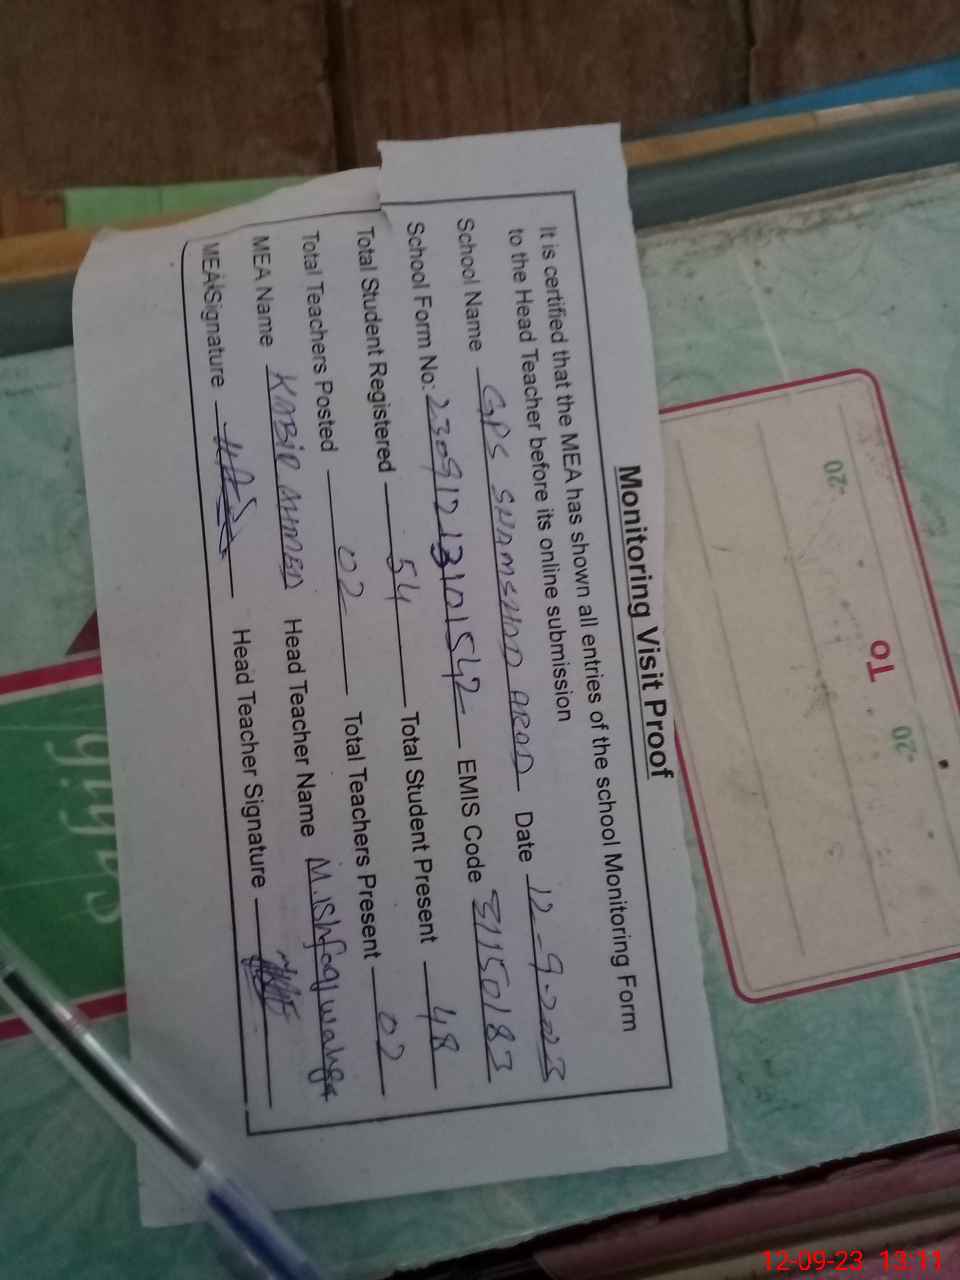 Monitoring Visit Proof
It is certified that the MEA has shown all entries of the school Monitoring Form
to the Head Teacher before its online submission
School Name GPS SHAMSHAD ARAD Date 12-9-2023
School Form No: 23091213101542 EMIS Code 31150183
Total Student Registered 54 Total Student Present 48
Total Teachers Posted 02 Total Teachers Present 02
MEA Name KABIR AHMED Head Teacher Name M.ishfaq
MEA Signature Head Teacher Signature
TO
20
20
12-09-23 13:11